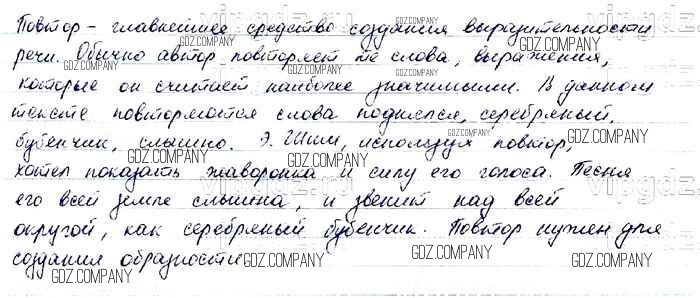 Повтор - главнейшее средство создания выразительности
речи. Обычно автор повторяет те слова, выражения,
которые он считает наиболее значимыми. В данном
тексте повторяются слова поднялся, серебряный,
бубенчик, слышно. Э. Шим, используя повтор,
хотел показать жаворонка и силу его голоса. Песня
его всей земле слышна, и звенит над всей
округой, как серебряный бубенчик. Повтор нужен для
создания образности
GDZ.COMPANY
GDZ.COMPANY
GDZ.COMPANY
GDZ.COMPANY
GDZ.COMPANY
GDZ.COMPANY
GDZ.COMPANY
GDZ.COMPANY
GDZ.COMPANY
GDZ.COMPANY
GDZ.COMPANY
GDZ.COMPANY